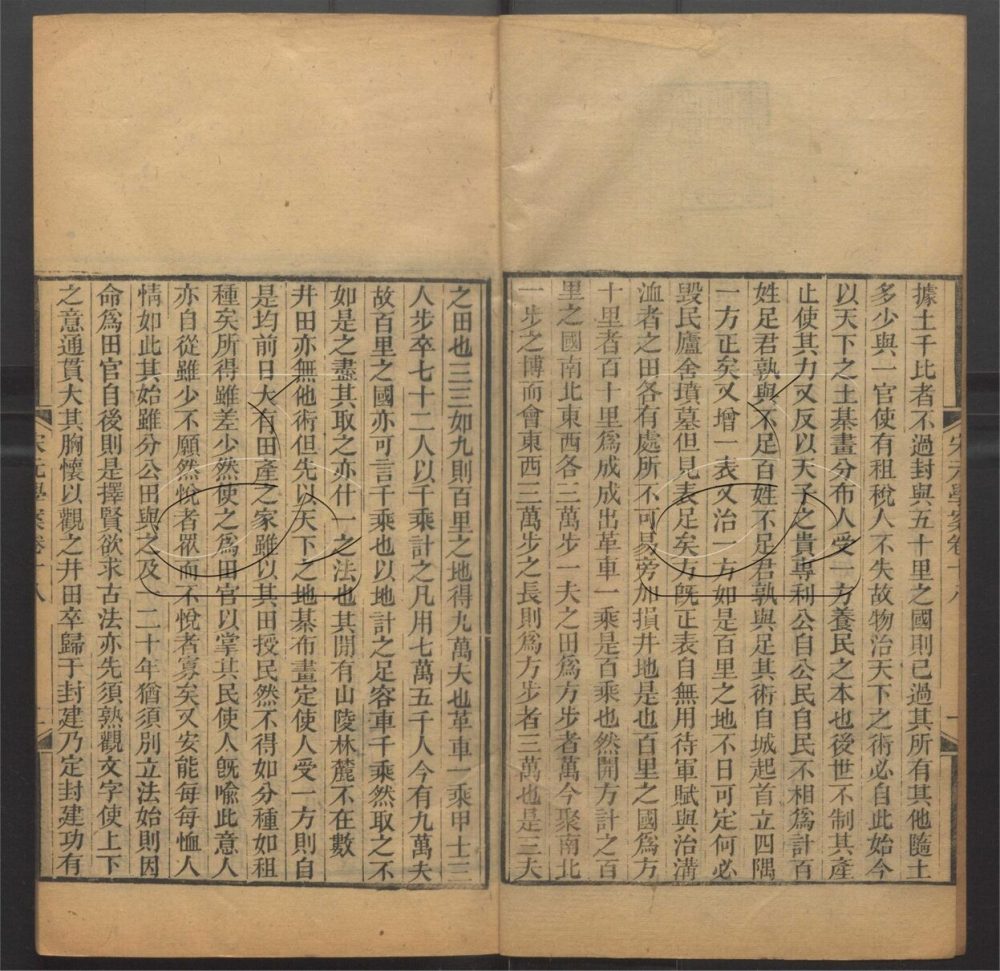 據土千比者不過封與五十里之國則已過其所有其他隨土
多少與一官使有租稅人不失故物治天下之術必自此始今
以天下之土棊畫分布人受一方養民之本也後世不制其產
止使其力又反以天子之貴專利公自公民自民不相爲計百
姓足君孰與不足百姓不足君孰與足其術自城起首立四隅
一方正矣又增一表又治一方如是百里之地不日可定何必
毀民廬舍墳墓但見表足矣方旣正表自無用待軍賦與治溝
洫者之田各有處所不可易旁加損井地是也百里之國爲方
十里者百十里爲成成出革車一乘是百乘也然開方計之百
里之國南北東西各三萬步一夫之田爲方步者萬今聚南北
一步之博而會東西三萬步之長則爲方步者三萬也是三夫
之田也三三如九則百里之地得九萬夫也革車一乘甲士三
人步卒七十二人以千乘計之凡用七萬五千人今有九萬夫
故百里之國亦可言千乘也以地計之足容車千乘然取之不
如是之盡其取之亦什一之法也其閒有山陵林麓不在數
井田亦無他術但先以天下之地棊布畫定使人受一方則自
是均前日大有田產之家雖以其田授民然不得如分種如租
種矣所得雖差少然使之爲田官以掌其民使人旣喩此意人
亦自從雖少不願然悅者衆而不悅者寡矣又安能每每恤人
情如此其始雖分公田與之及一二十年猶須別立法始則因
命爲田官自後則是擇賢欲求古法亦先須熟觀文字使上下
之意通貫大其胸懷以觀之井田卒歸于封建乃定封建功有
宋元學案卷十八